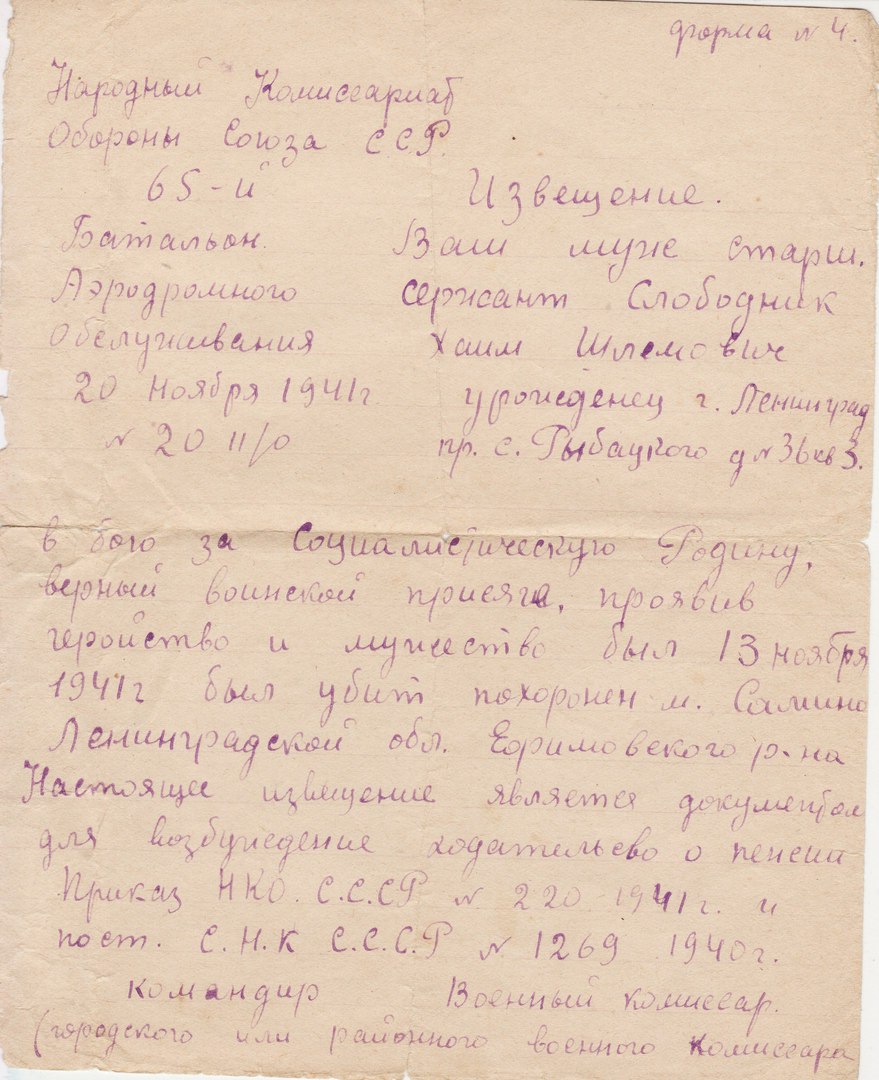 форма № 4.
Народный Комиссариат
Обороны Союза С.С.Р.
65-й
Батальон
Аэродромного
Обслуживания
20 ноября 1941г.
№ 20 11/0
Извещение.
Ваш муж старш.
сержант Слободник
Хаим Шлемович
урожденец г. Ленинград
пр. с. Рыбацкого д № 36 кв 3.
в бою за Социалистическую Родину,
верный воинской присяга, проявив
геройство и мужество был 13 ноября
1941г был убит похоронен м. Самино
Ленинградской обл. Ефимовского р-на
Настоящее извещение является документом
для возбуждение ходательсво о пенсии
Приказ НКО. С.С.С.Р № 220 1941г. и
пост. С.Н.К С.С.С.Р № 1269 1940г.
командир Военный комиссар.
(городского или районного военного комиссара